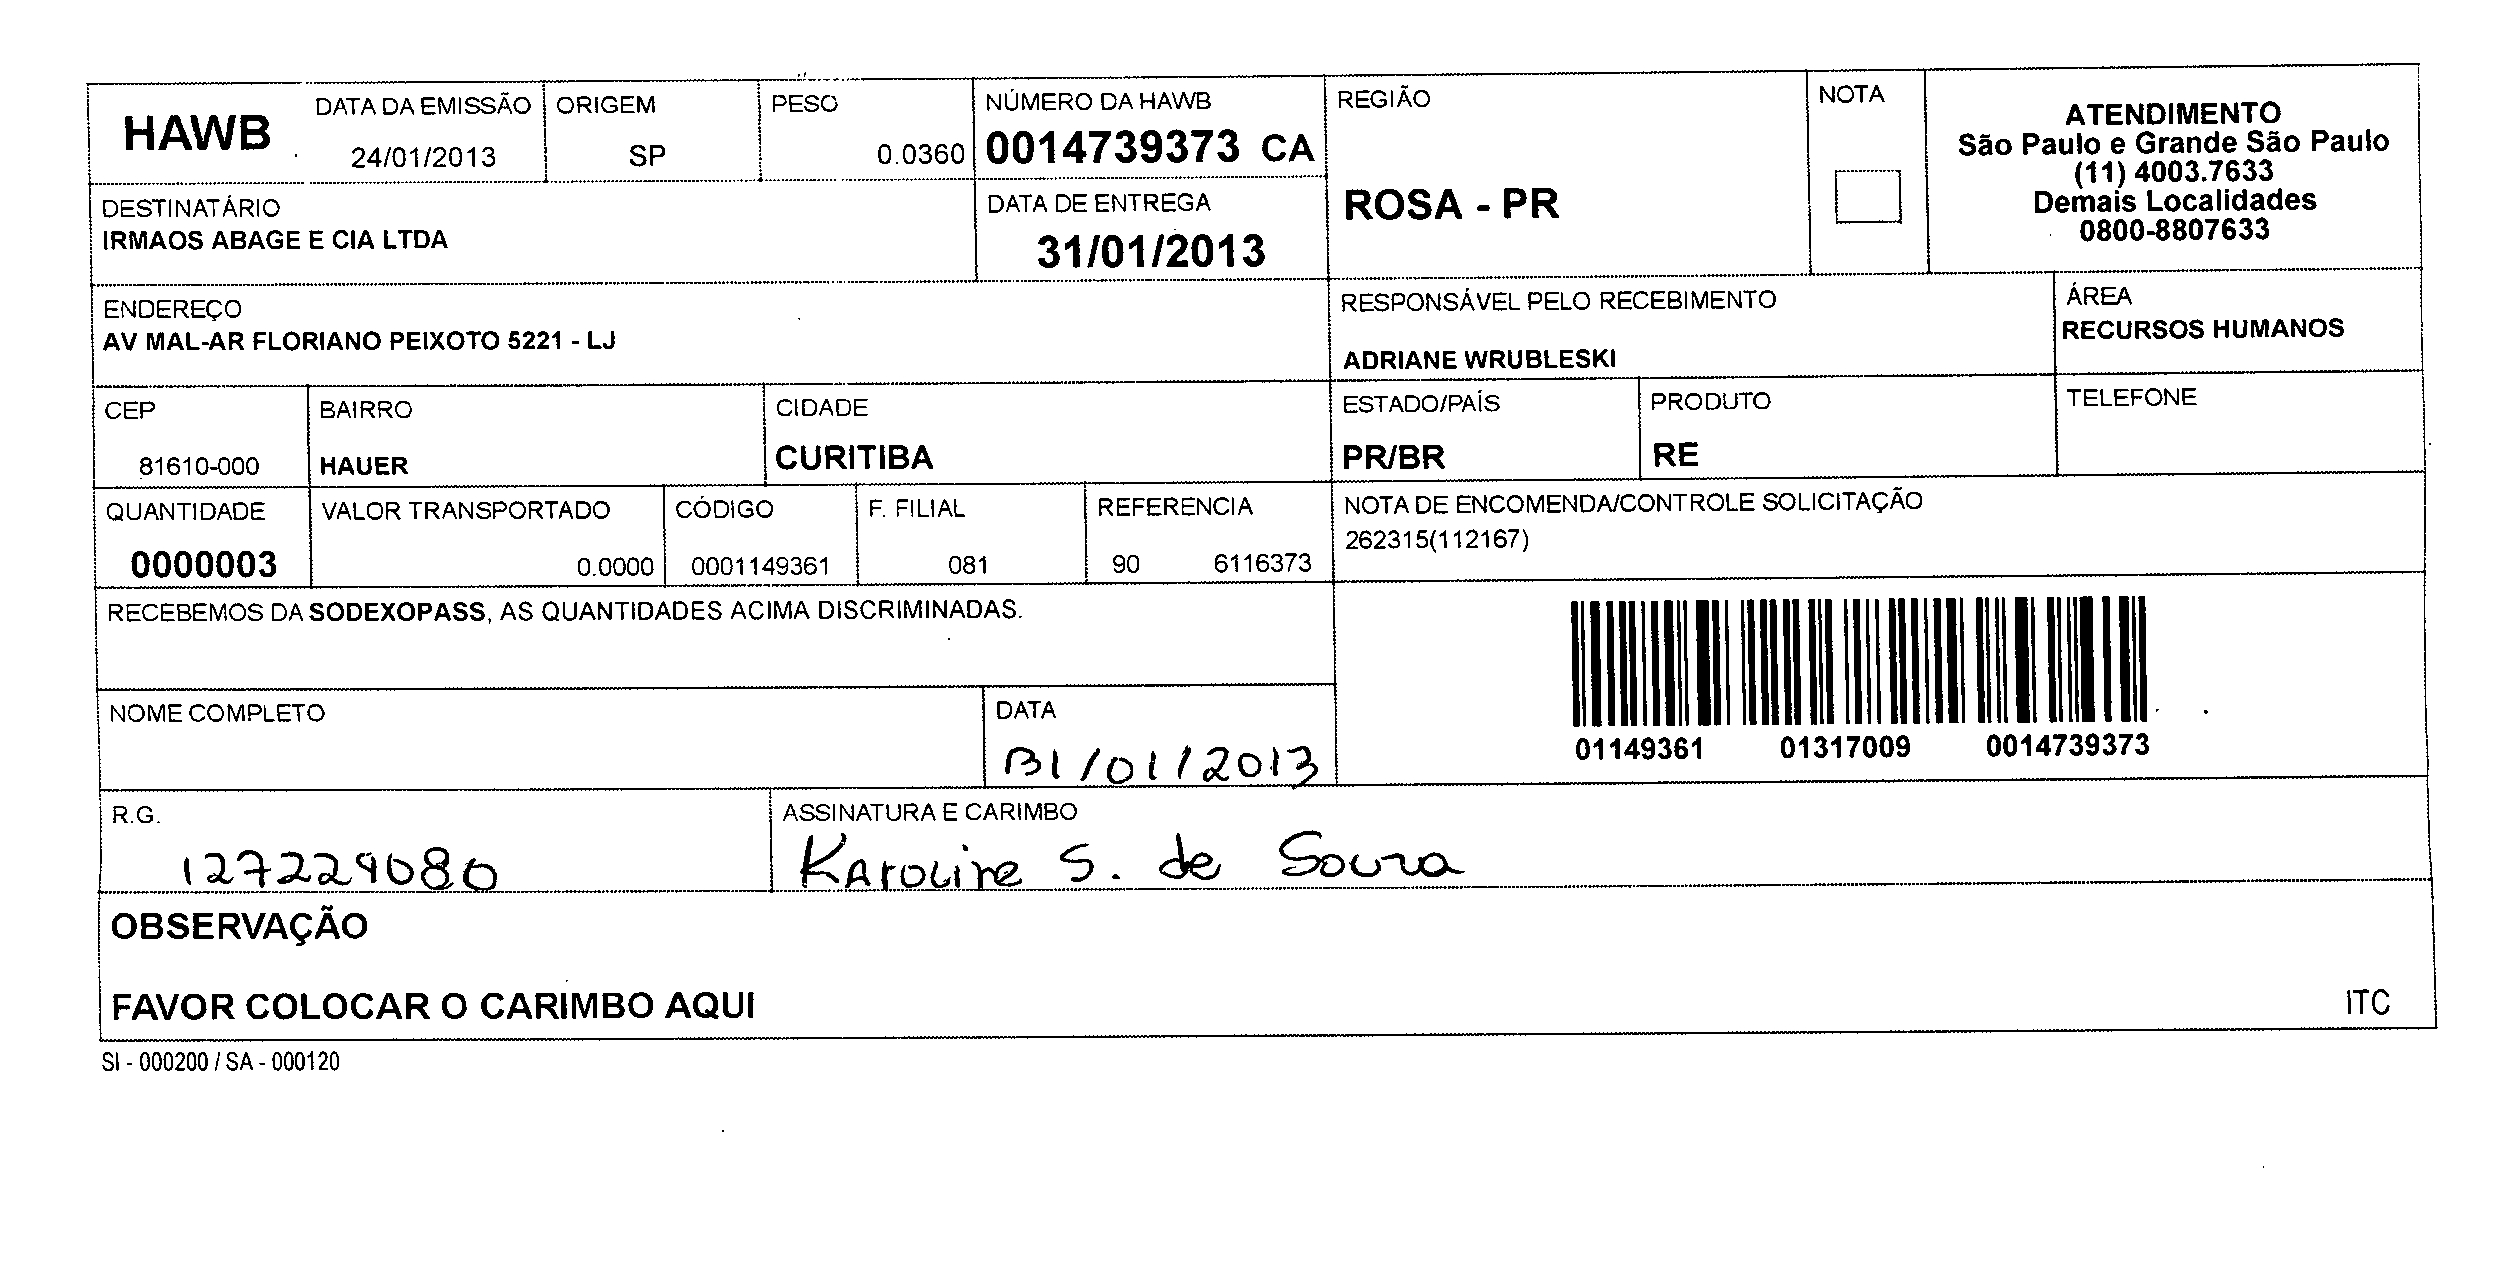 HAWB
DATA DA EMISSÃO
24/01/2013
ORIGEM
SP
PESO
0.0360
NÚMERO DA HAWB
0014739373 CA
REGIÃO
ROSA - PR
NOTA
ATENDIMENTO
São Paulo e Grande São Paulo
(11) 4003.7633
Demais Localidades
0800-8807633
DESTINATÁRIO
IRMAOS ABAGE E CIA LTDA
DATA DE ENTREGA
31/01/2013
ENDEREÇO
AV MAL-AR FLORIANO PEIXOTO 5221 - LJ
RESPONSÁVEL PELO RECEBIMENTO
ADRIANE WRUBLESKI
ÁREA
RECURSOS HUMANOS
CEP
81610-000
BAIRRO
HAUER
CIDADE
CURITIBA
ESTADO/PAÍS
PR/BR
PRODUTO
RE
TELEFONE
QUANTIDADE
0000003
VALOR TRANSPORTADO
0.0000
CÓDIGO
0001149361
F. FILIAL
081
REFERENCIA
90 6116373
NOTA DE ENCOMENDA/CONTROLE SOLICITAÇÃO
262315(112167)
RECEBEMOS DA SODEXOPASS, AS QUANTIDADES ACIMA DISCRIMINADAS.
01149361 01317009 0014739373
NOME COMPLETO
DATA
31/01/2013
R.G.
127229080
ASSINATURA E CARIMBO
Karoline S. de Souza
OBSERVAÇÃO
FAVOR COLOCAR O CARIMBO AQUI
ITC
SI - 000200 / SA - 000120